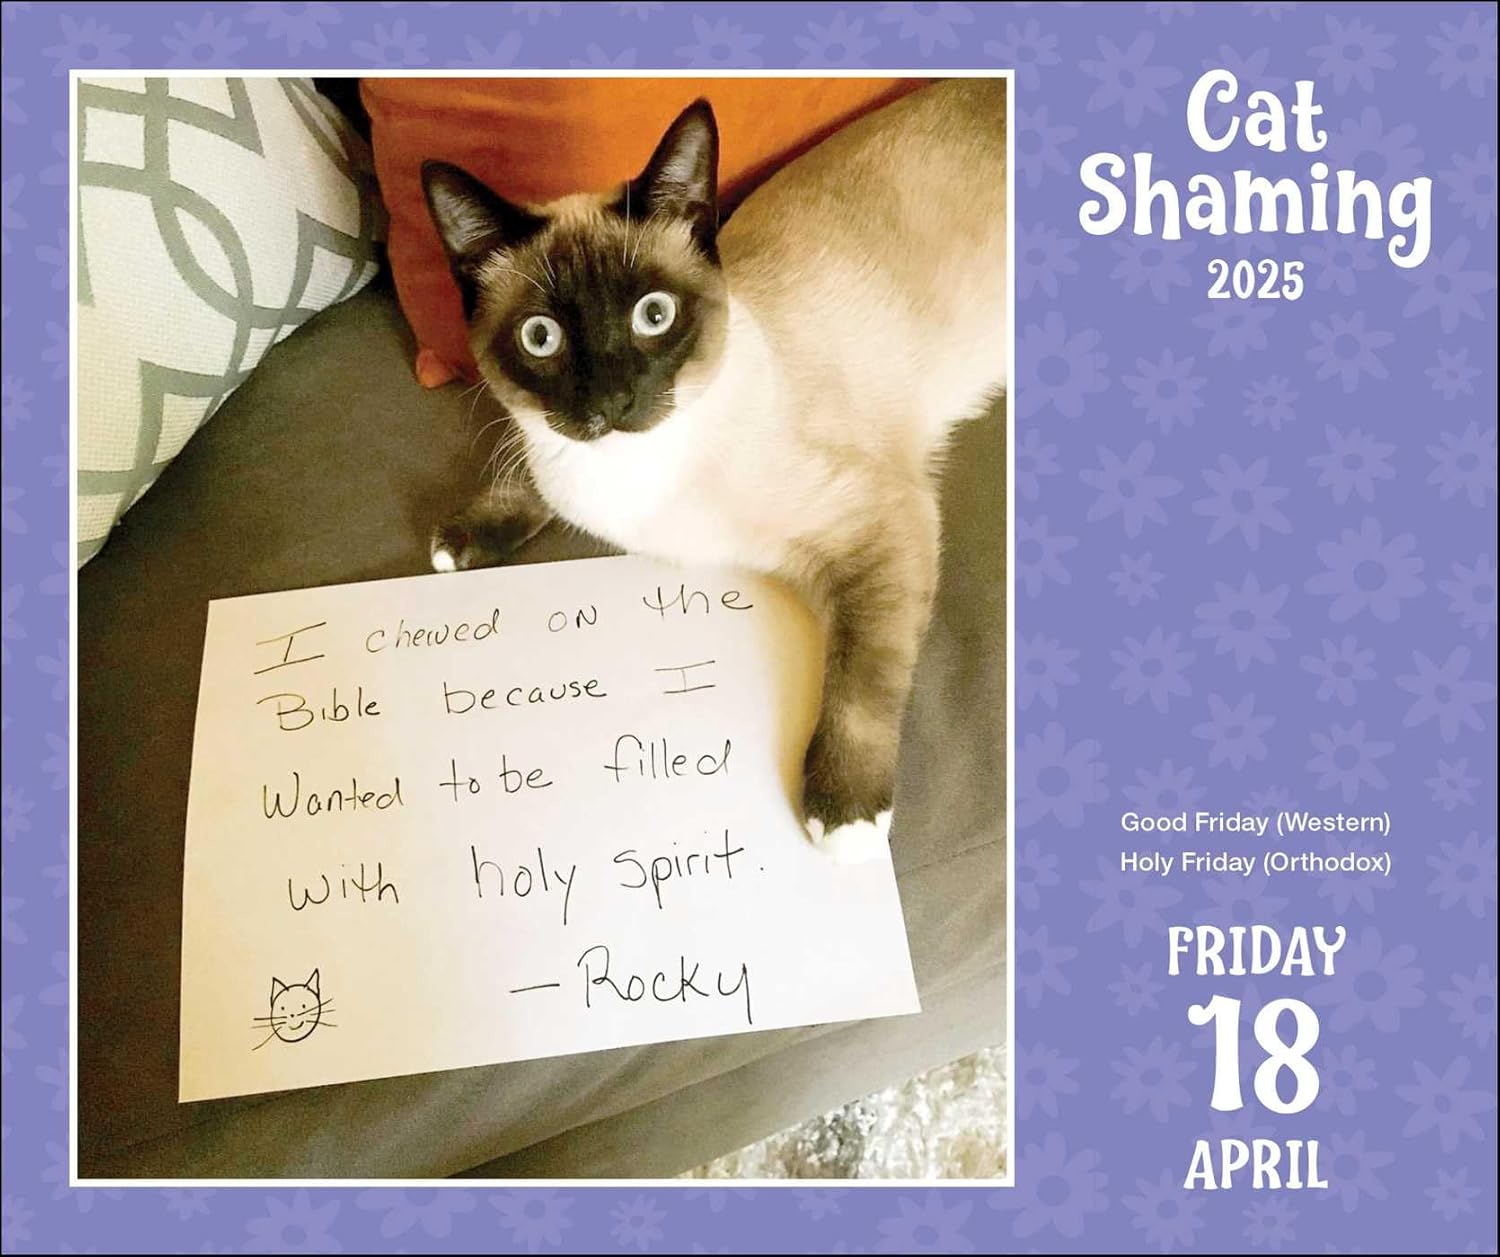 Cat
Shaming
2025
I chewed on the
Bible because I
Wanted to be filled
with holy spirit.
– Rocky
Good Friday (Western)
Holy Friday (Orthodox)
FRIDAY
18
APRIL